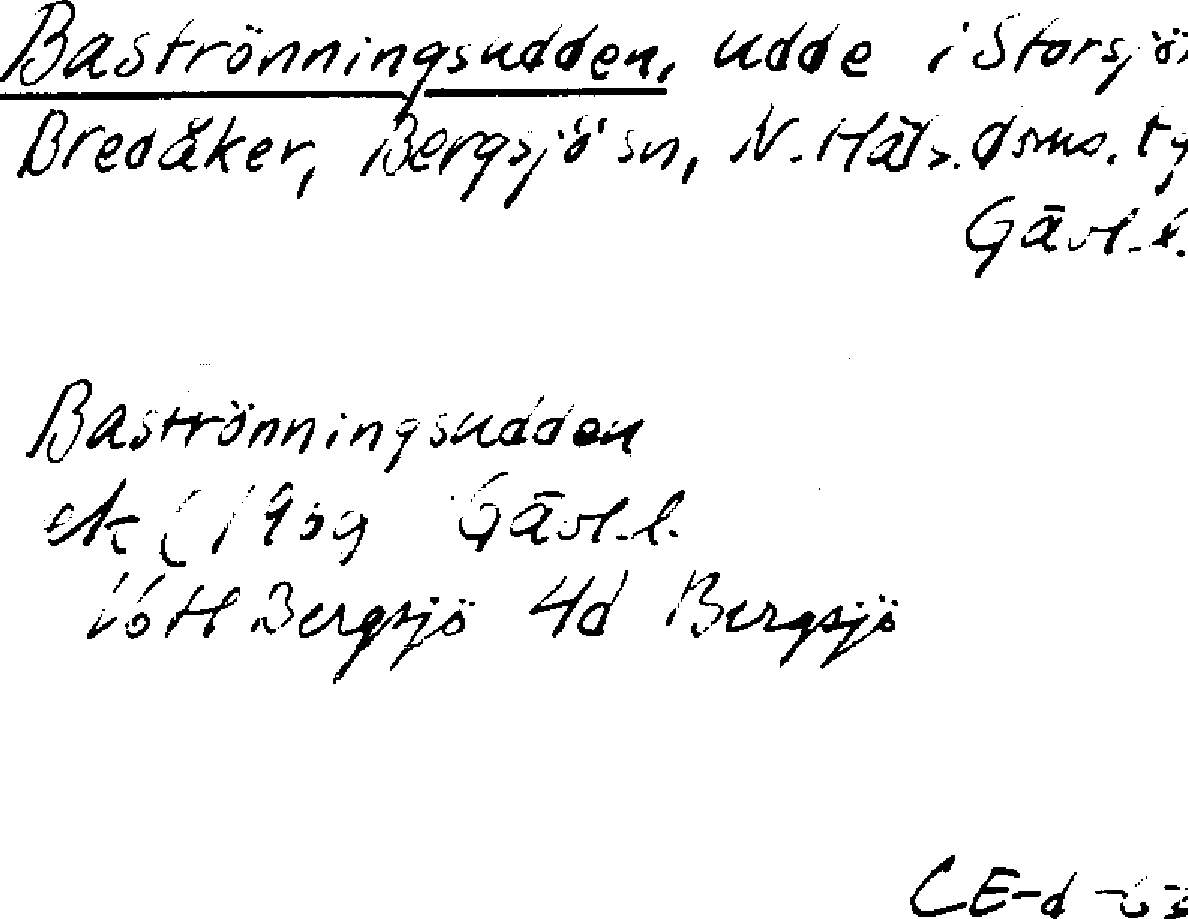 Baströnningsudden, udde i Storsjön
Bredåker, Bergsjö sn, N. Häls. dsms. tg
Gävl. l.
Baströnningsudden
ek ( 1959 Gävl. l.
16 H Bergsjö 4d Bergsjö
CE-d -63